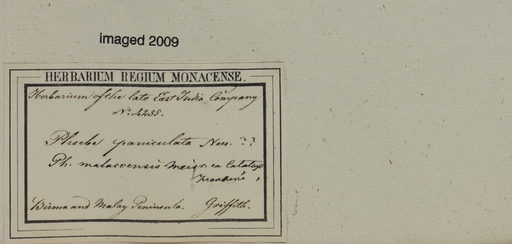 imaged 2009
HERBARIUM REGIUM MONACENSE.
Herbarium of the late East India Company
No. 4235.
Phoebe paniculata Nees. ??
Ph. malaccensis Meisn.
Birma and Malay Peninsula. Griffith.